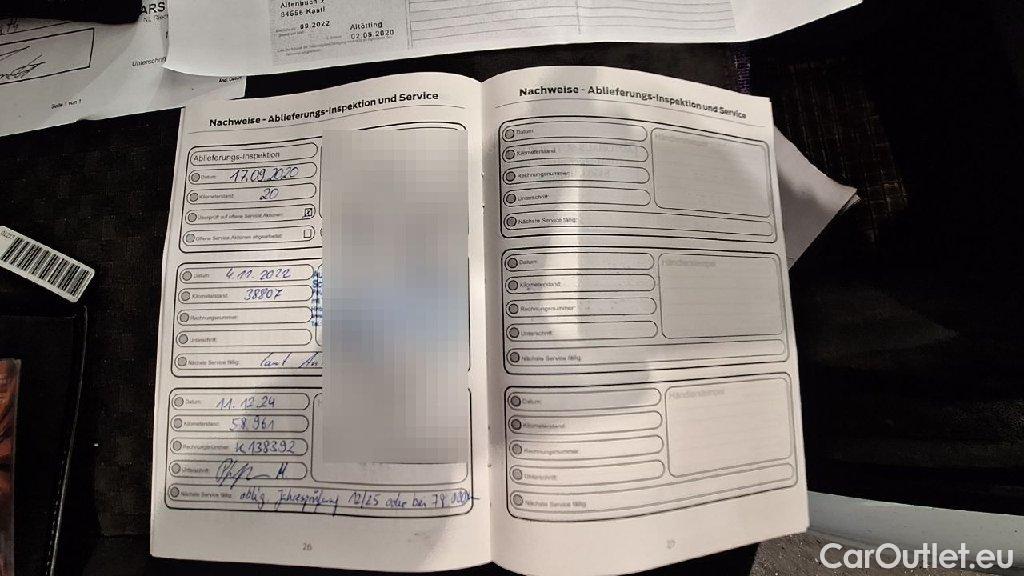 09.2022
Altötting
02.09.2020
Unterschrift
Nachweise - Ablieferungs-Inspektion und Service
Ablieferungs-Inspektion
Datum: 17.09.2020
Kilometerstand: 20
Überprüft auf offene Service Aktionen:
Offene Service Aktionen abgearbeitet:
Datum: 4.11.2022
Kilometerstand: 38807
Rechnungsnummer:
Unterschrift:
Nächste Service fällig: laut
Datum: 11.12.24
Kilometerstand: 58.961
Rechnungsnummer: K138392
Unterschrift:
Nächste Service fällig: oblig. Jahresprüfung 12/25 oder bei
26
Nachweise - Ablieferungs-Inspektion und Service
Datum:
Kilometerstand:
Rechnungsnummer:
Unterschrift:
Nächste Service fällig:
Händlerstempel
Datum:
Kilometerstand:
Rechnungsnummer:
Unterschrift:
Nächste Service fällig:
Händlerstempel
Datum:
Kilometerstand:
Rechnungsnummer:
Unterschrift:
Nächste Service fällig:
Händlerstempel
CarOutlet.eu